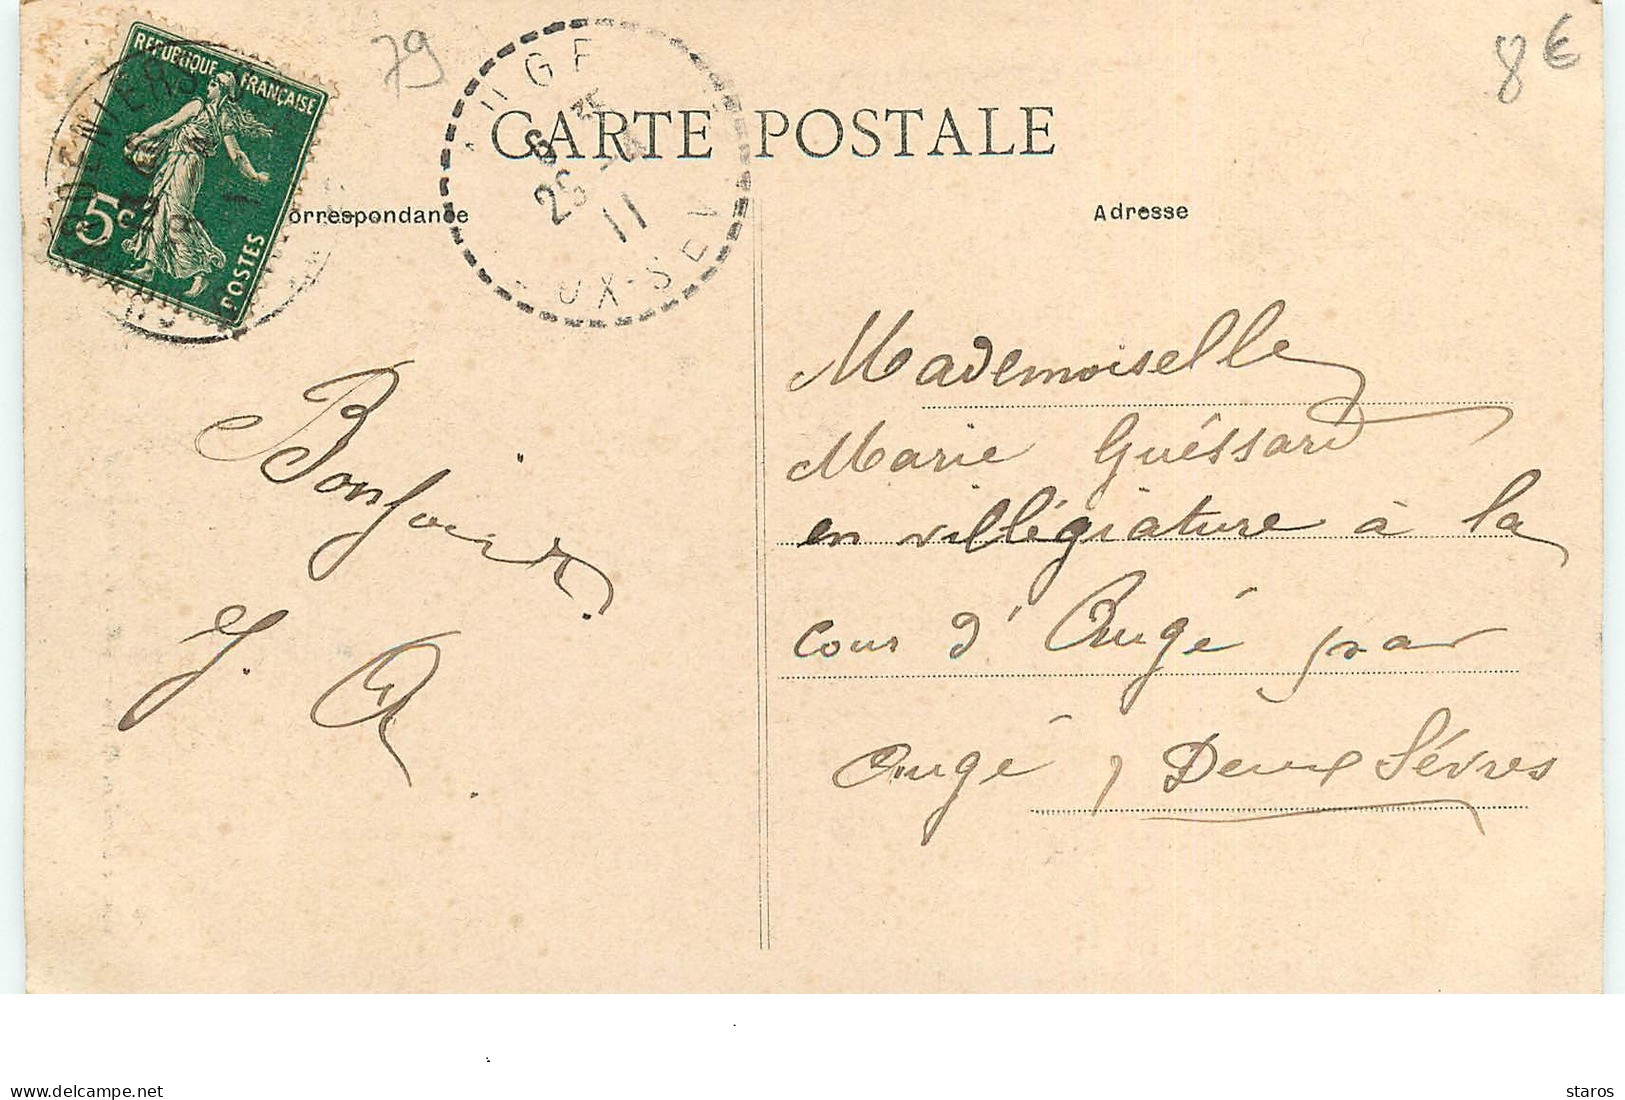 REPUBLIQUE FRANÇAISE
5c
POSTES
79
8€
CARTE POSTALE
orrespondance
Adresse
Mademoiselle
Marie Guéssard
en villégiature à la
cour d'Augé par
Augé, Deux Sèvres
Bonjour
J. A.
www.delcampe.net
staros